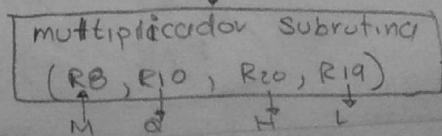 multiplicador subrutina
(R8, R10, R20, R19)
M Q H L